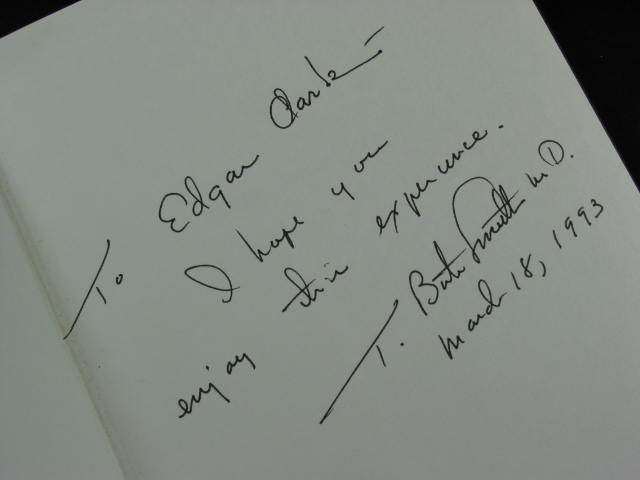 To Edgar Clark –
I hope you
enjoy this experience.
T. Burton Smith M.D.
March 18, 1993